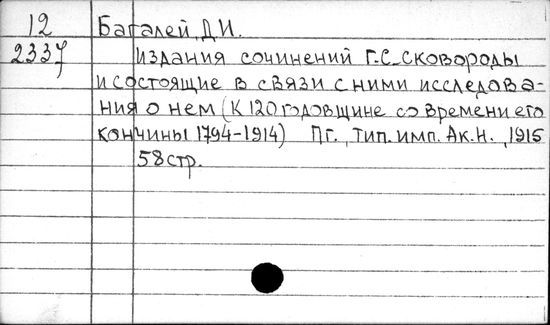 12 Багалей, Д.И.
2337 Издания сочинений Г.С. Сковороды
и состоящие в связи с ними исследова-
ния о нем (К 120 годовщине со времени его
кончины 1794-1914) Пг., тип. имп. Ак. н., 1915
58 стр.